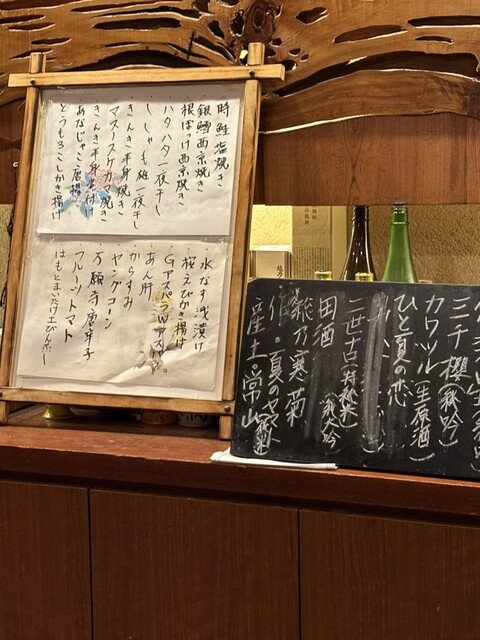 時鮭塩焼き
銀鱈西京焼き
根ぼっけ西京焼き
ハタハタ一夜干し
ししゃも 一夜干し
きんき半身焼き
マスノスケカマ焼き
きんき半身煮付
あなじゃこ唐揚
とうもろこしかき揚げ
水なす浅漬け
桜えびかき揚げ
あん肝
からすみ
ヤングコーン
万願寺唐辛子
フルーツトマト
はもとまいたけ土びんむし
三千櫻
カワツル(生原酒)
ひと夏の恋
二世古
田酒
総乃寒菊
夏のヤ
産土・常山